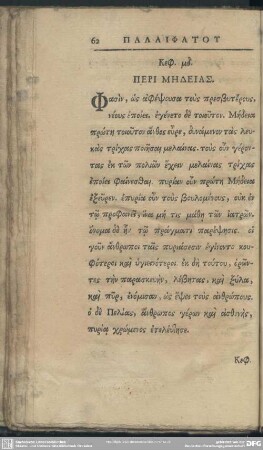 62 ΠΑΛΑΙΦΑΤΟΥ
Κεφ. μδ.
ΠΕΡΙ ΜΗΔΕΙΑΣ.
Φασὶν, ὡς ἀφέψουσα τοὺς πρεσβυτέρους,
νέους ἐποίει. ἐγένετο δὲ τοιοῦτον. Μήδεια
πρώτη τοιοῦτον ἄνθος εὗρε, δυνάμενον τὰς λευ-
κὰς τρίχας ποιῆσαι μελαίνας. τοὺς οὖν γέρον-
τας ἐκ τῶν πολιῶν ἔχειν μελαίνας τρίχας
ἐποίει φαίνεσθαι. πυρίαν οὖν πρώτη Μήδεια
ἐξεῦρεν. ἐπυρία οὖν τοὺς βουλομένους, οὐκ ἐν
τῷ προφανεῖ, ἵνα μή τις μάθῃ τῶν ἰατρῶν.
ὄνομα δὲ ἦν τῷ πράγματι παρέψησις. οἱ
γοῦν ἄνθρωποι ταῖς πυριάσεσιν ἐγένοντο κου-
φότεροι καὶ ὑγιεινότεροι. ἐκ δὴ τούτου, ὁρῶν-
τες τὴν παρασκευὴν, λέβητας, καὶ ξύλα,
καὶ πῦρ, ἐνόμισαν, ὡς ἕψει τοὺς ἀνθρώπους.
ὁ δὲ Πελίας, ἄνθρωπος γέρων καὶ ἀσθενὴς,
πυρίᾳ χρώμενος ἐτελεύτησε.
Κεφ.